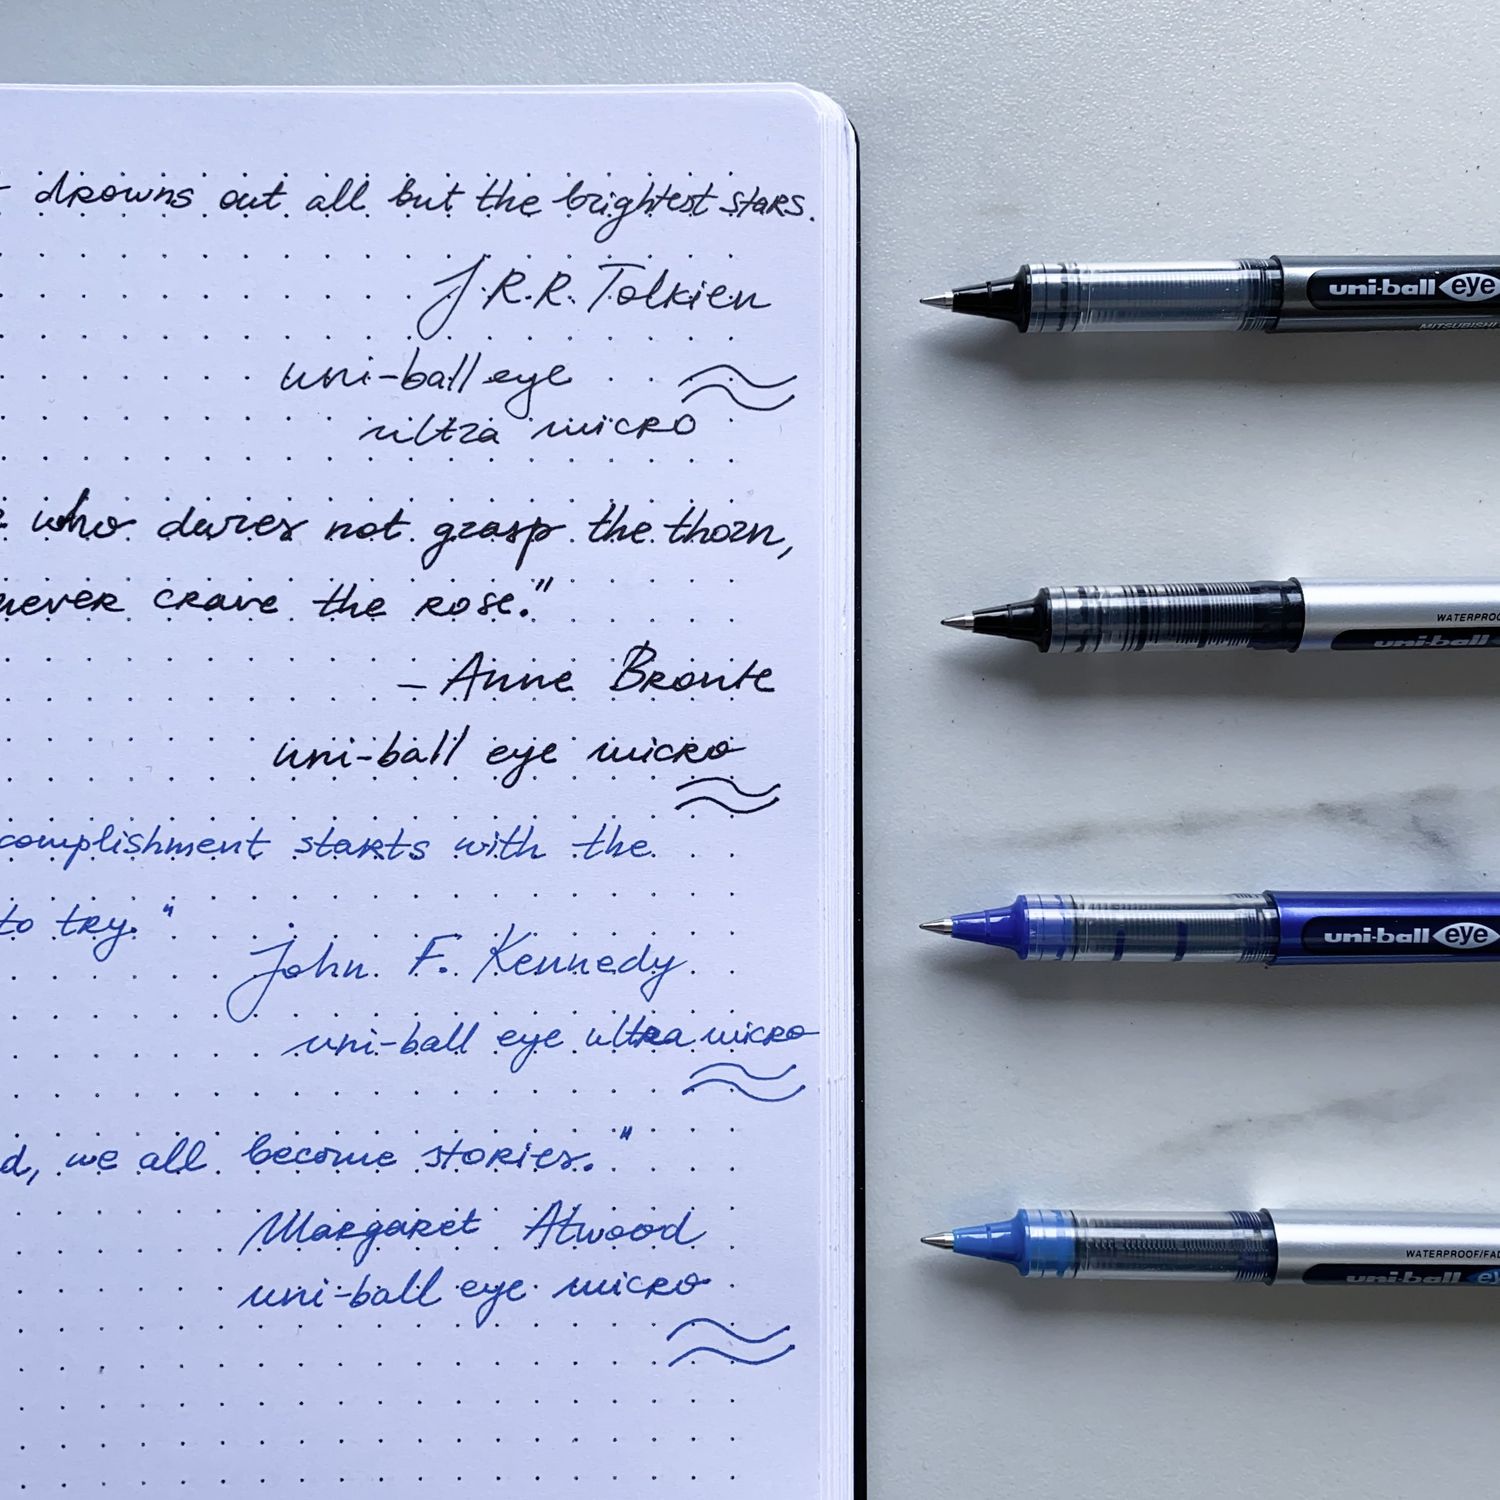 drowns out all but the brightest stars.
J.R.R. Tolkien
uni-ball eye
ultra micro
who dares not grasp the thorn,
never crave the rose."
- Anne Bronte
uni-ball eye micro
complishment starts with the
to try."
John F. Kennedy
uni-ball eye ultra micro
d, we all become stories."
Margaret Atwood
uni-ball eye micro
uni-ball eye
MITSUBISHI
WATERPROO
uni-ball
uni-ball eye
WATERPROOF/FA
uni-ball ey